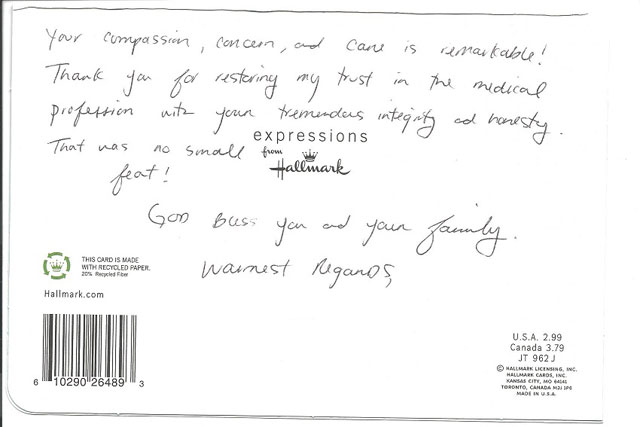 Your compassion, concern, and care is remarkable!
Thank you for restoring my trust in the medical
profession with your tremendous integrity and honesty.
expressions
That was no small
from
Hallmark
feat!
God Bless you and your family.
Warmest Regards,
THIS CARD IS MADE
WITH RECYCLED PAPER.
20% Recycled Fiber
Hallmark.com
6 10290 26489 3
U.S.A. 2.99
Canada 3.79
JT 962 J
© HALLMARK LICENSING, INC.
HALLMARK CARDS, INC.
KANSAS CITY, MO 64141
TORONTO, CANADA M2J 1P6
MADE IN U.S.A.